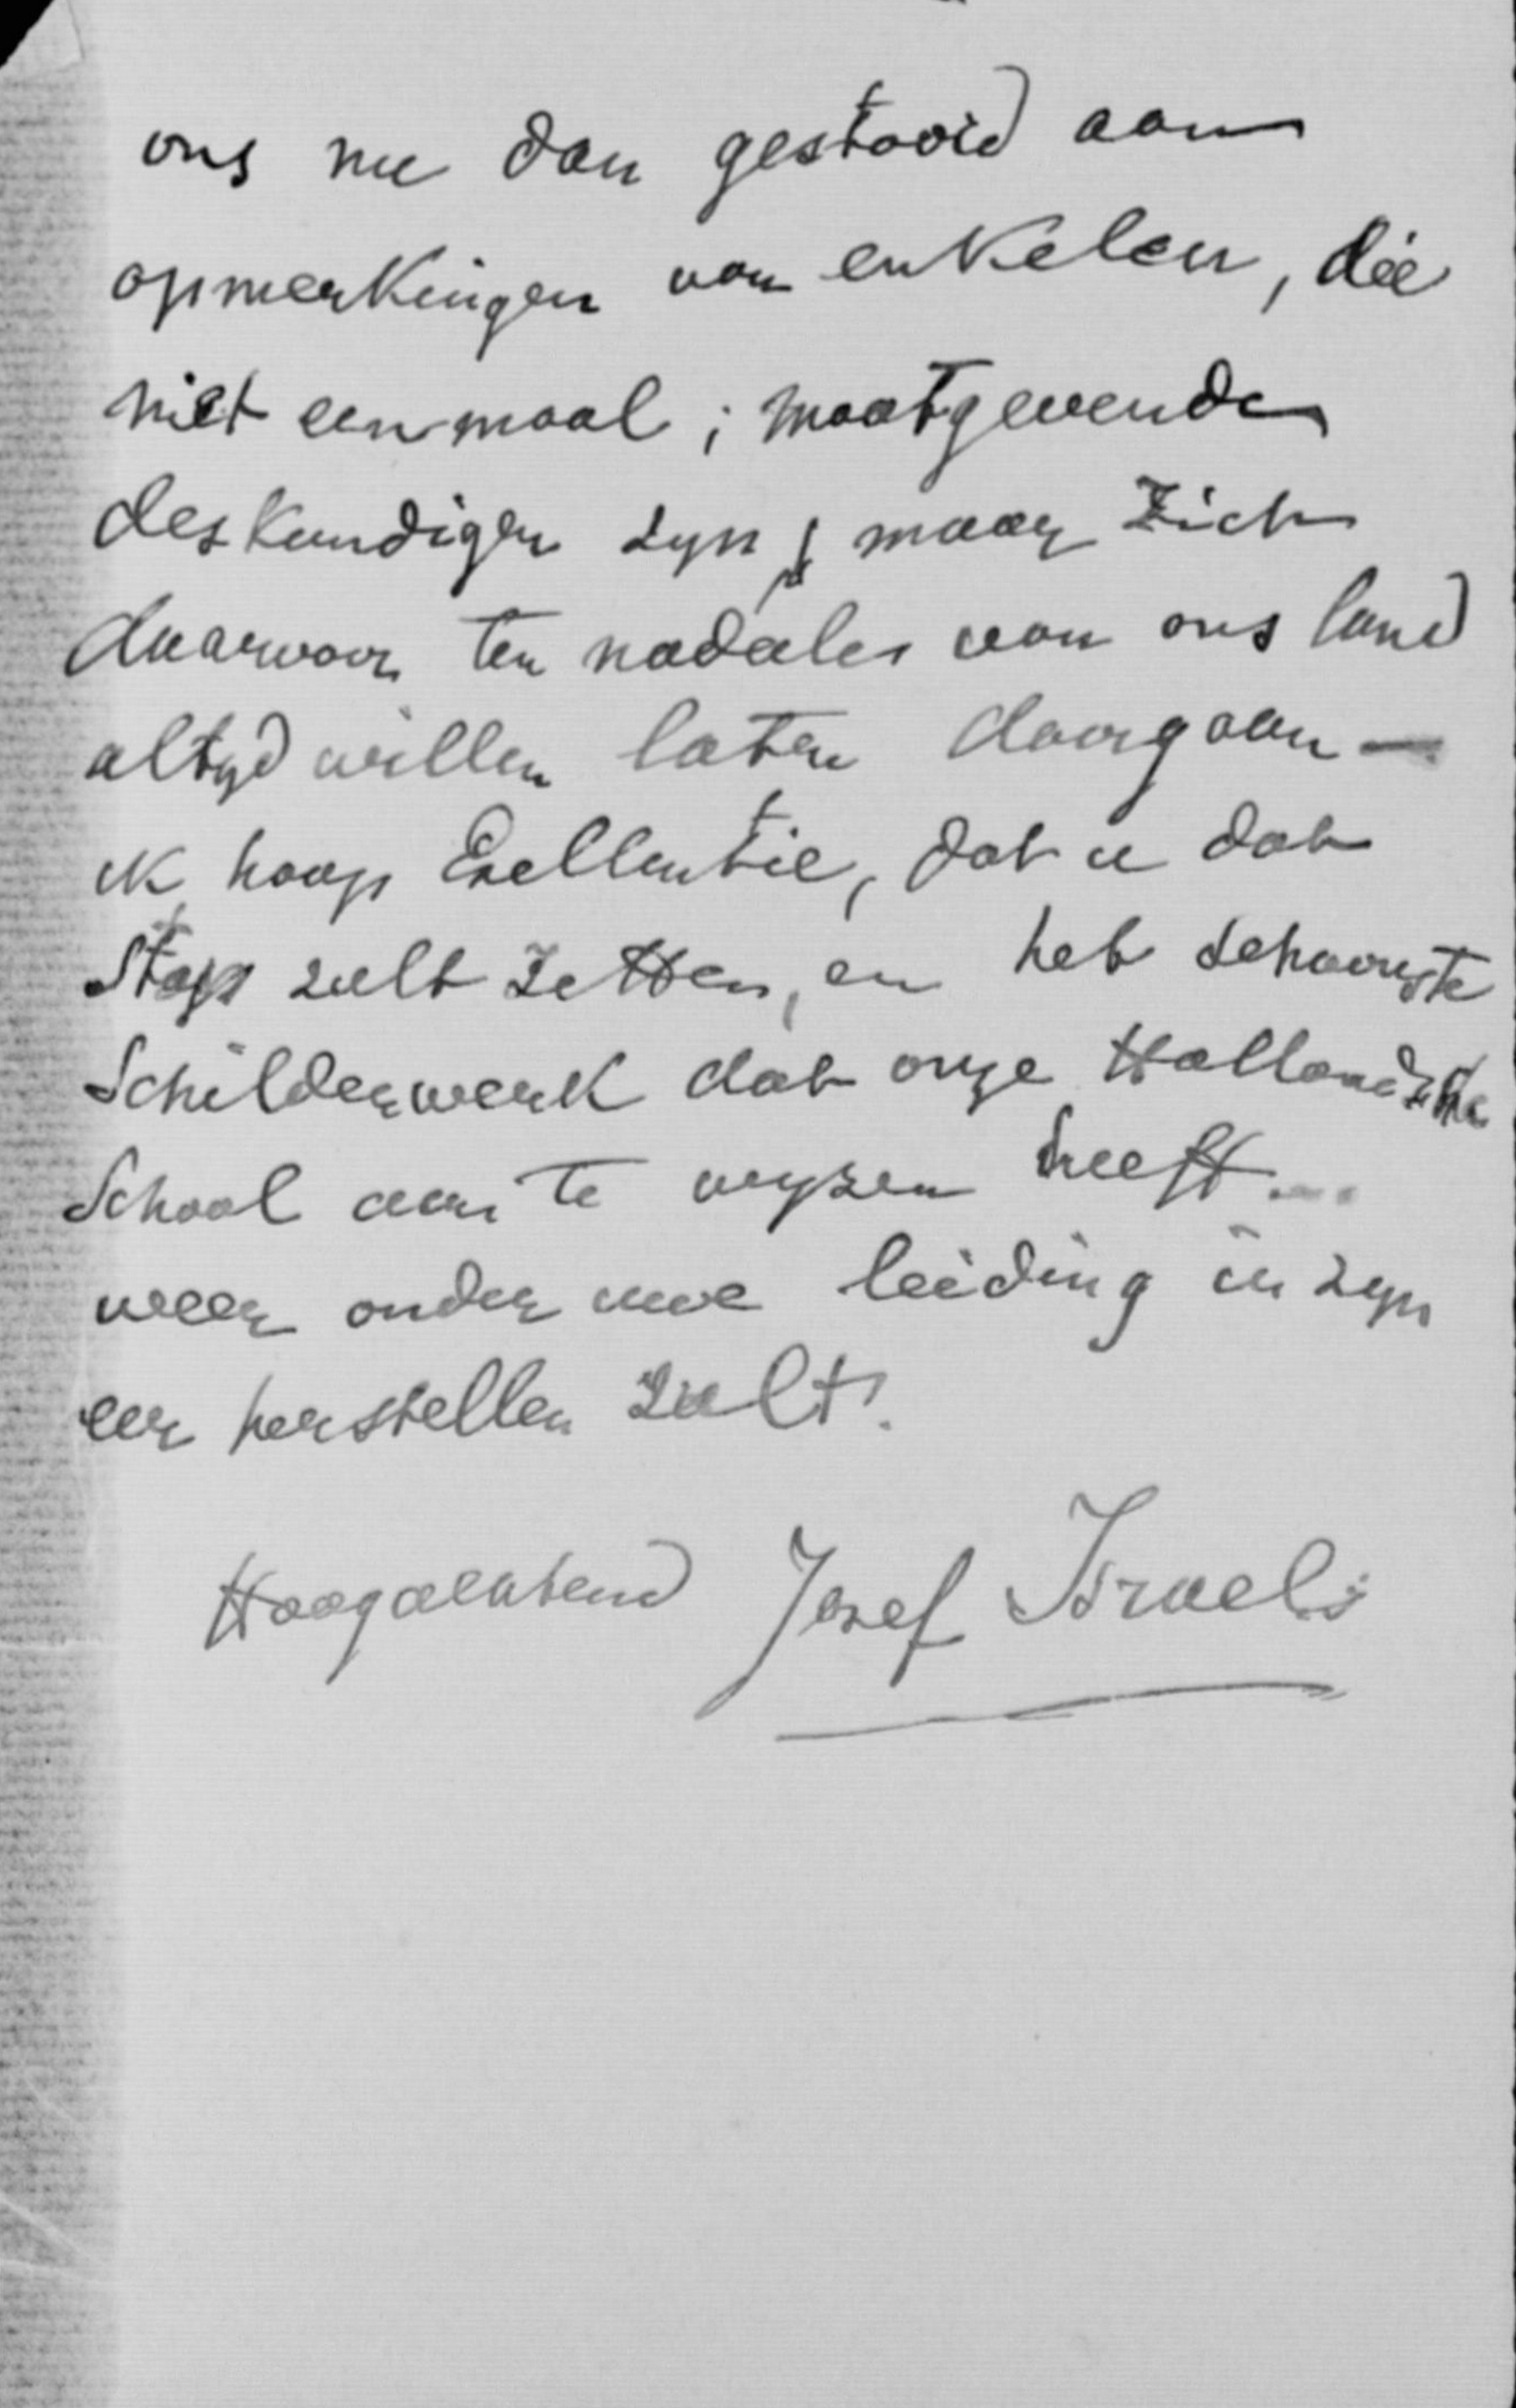 ons nu dan gestooid aan
opmerkingen van enkelen, die
niet eenmaal ; maatgevende
deskundigen zyn ; maar zich
daarvoor ten nadeelen van ons land
altyd willen laten doorgaan —
ik hoop Exellentie, dat u dat
stop zult zetten, en het schoonste
Schilderwerk dat onze Hollandsche
School aan te wyzen heeft...
weer onder uwe leiding in zyn
eer herstellen zult.
Hoogachtend Jozef Israels